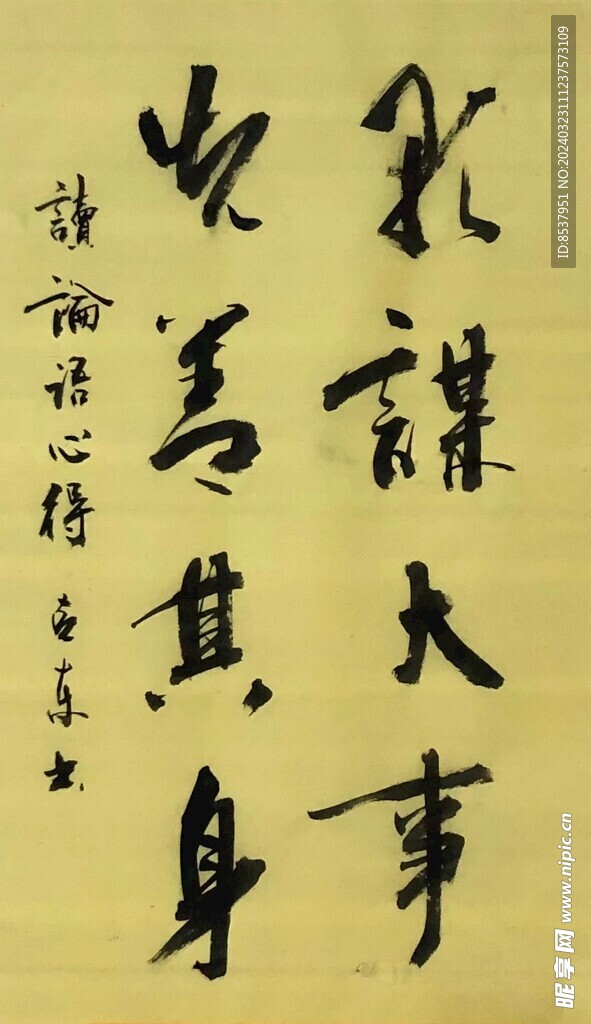 欲謀大事
先善其身
讀論语心得 吉东书
ID:8537951 NO:20240323111237573109
昵享网 www.nipic.cn